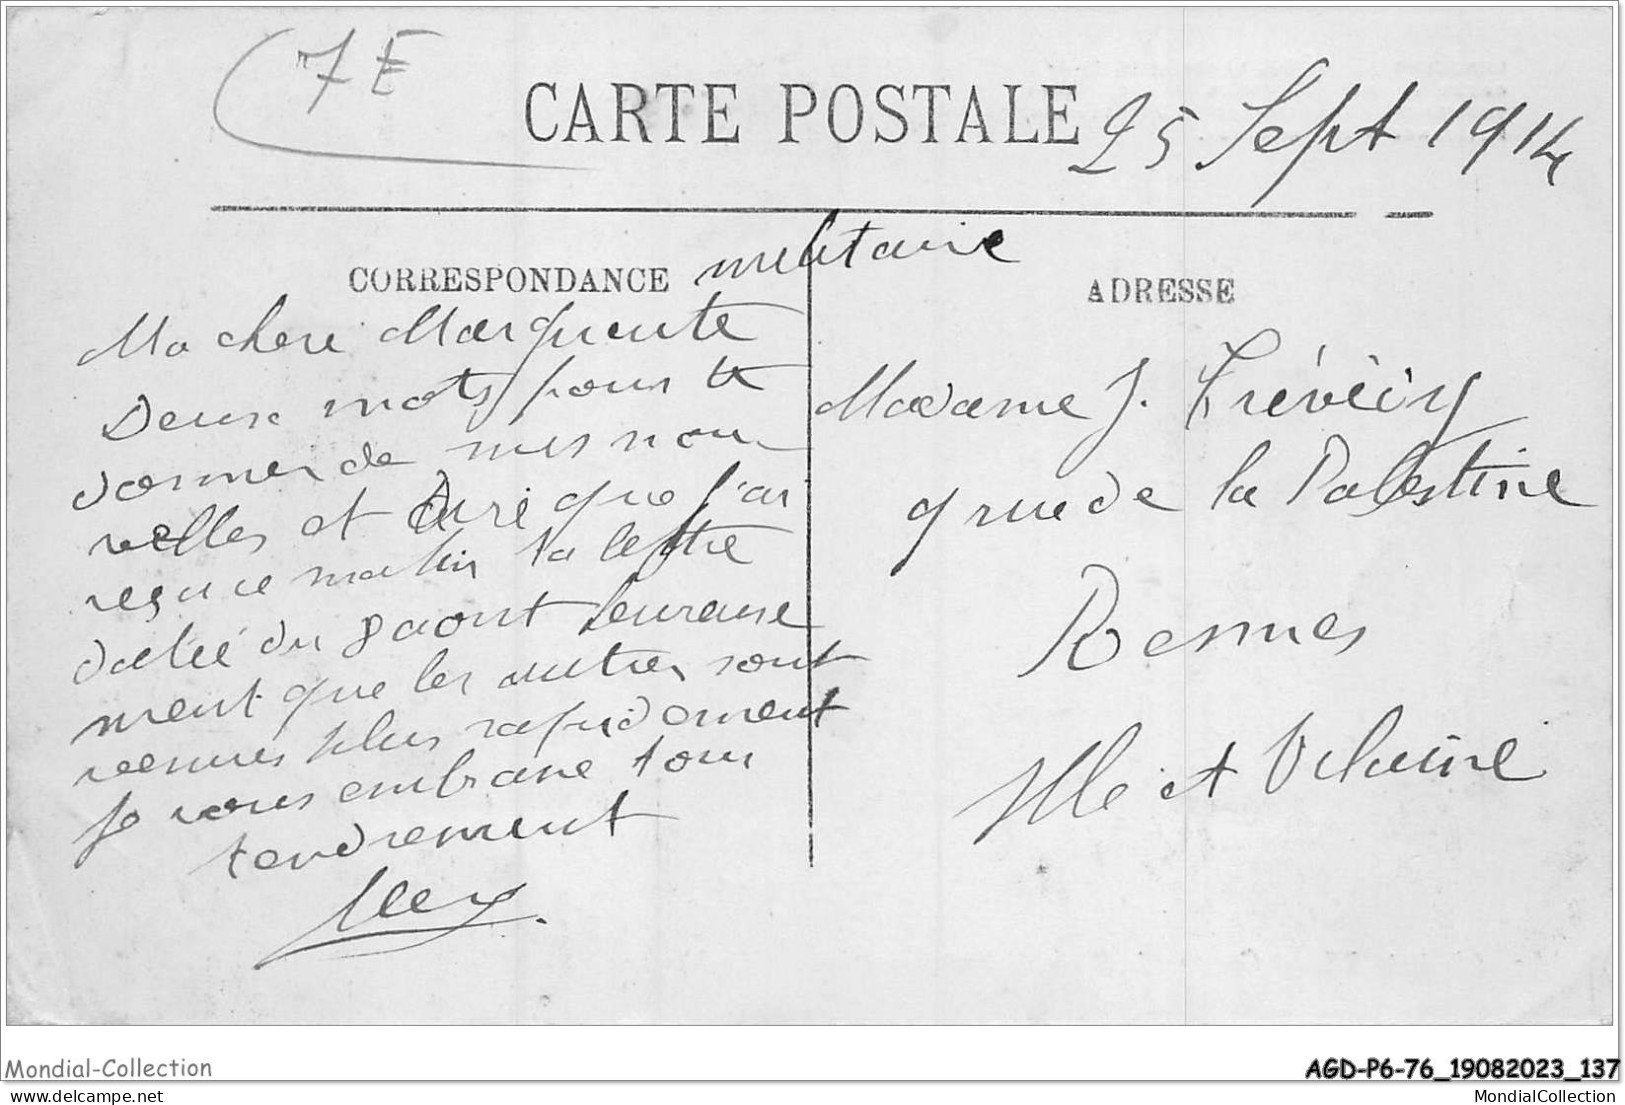 7E
CARTE POSTALE
25 Sept 1914
CORRESPONDANCE militaire
Ma chere Marguerite
Deux mots pour te
donner de mes nou
velles et dire que j'ai
reçu ce matin ta lettre
datée du 8 aout heureuse
ment que les autres sont
venues plus rapidement
Je vous embrasse tous
tendrement
Alex
ADRESSE
Madame J.
9 rue de la Palestine
Rennes
Ille et Vilaine
Mondial-Collection
AGD-P6-76_19082023_137
delcampe.net
MondialCollection